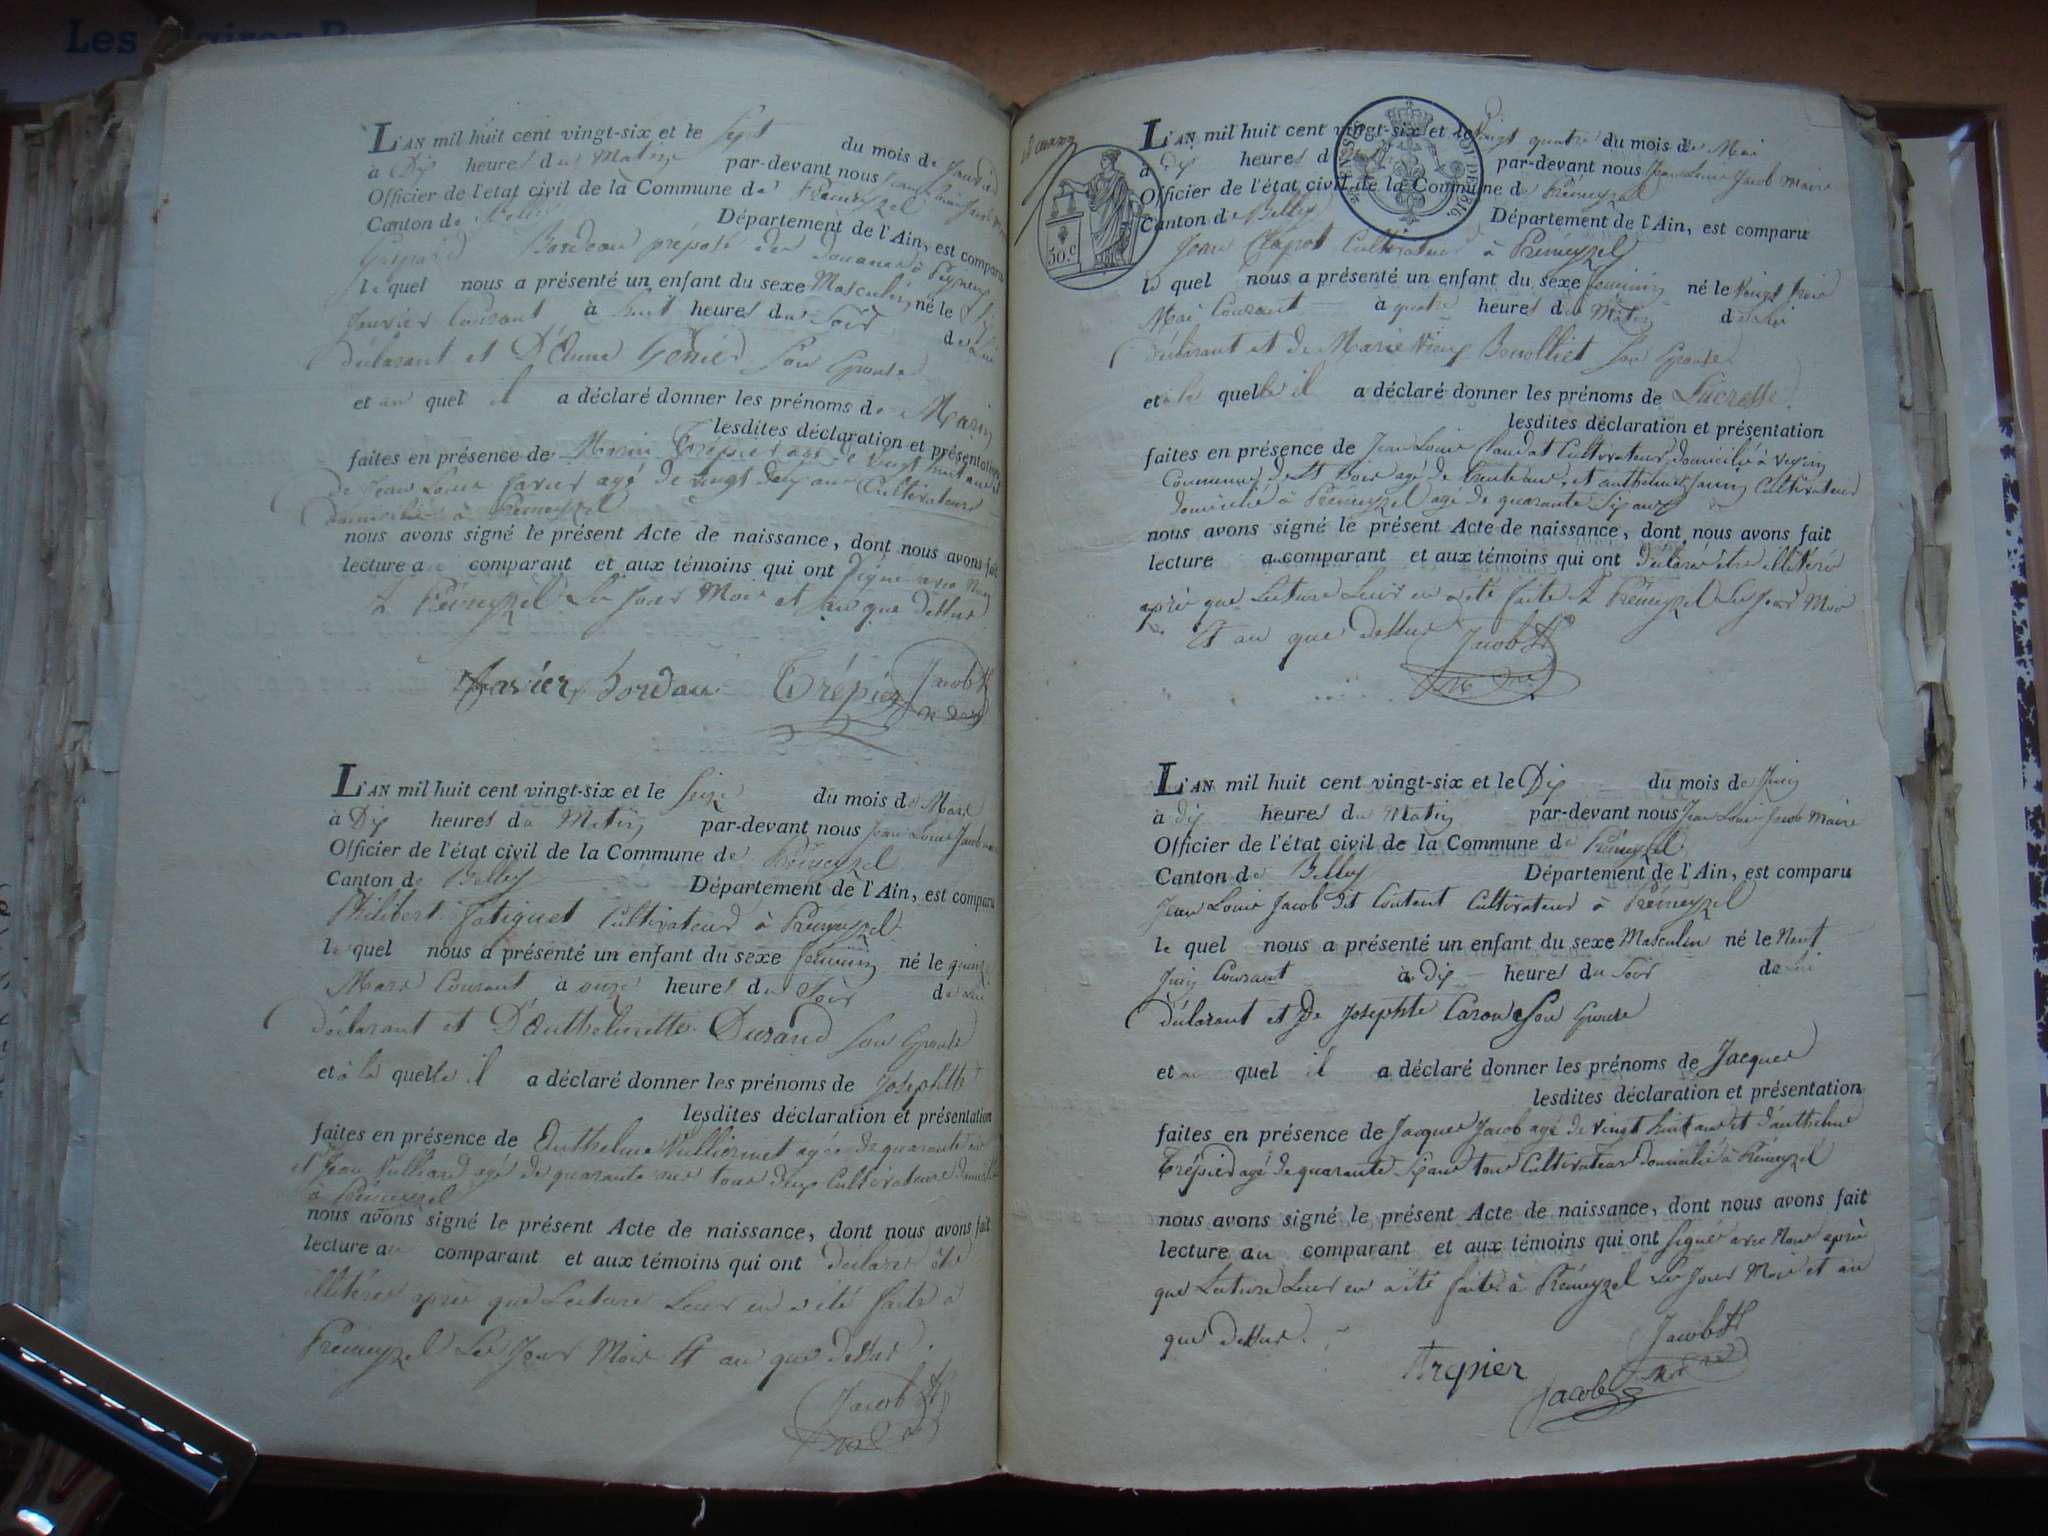 Les
L'AN mil huit cent vingt-six et le Sept du mois de Janvier
à Dix heures du Matin par-devant nous Jean Louis Jacob
Officier de l'état civil de la Commune de Prémeyzel
Canton de Belley Département de l'Ain, est comparu
Gaspard Bordeau préposé des douanes à Peyrieu
le quel nous a présenté un enfant du sexe Masculin né le Six
Janvier Courant à huit heures du Soir de Lui
déclarant et D'Anne Genier Son Epouse
et au quel il a déclaré donner les prénoms de Marin
lesdites déclaration et présentation
faites en présence de Marin Trépier agé de vingt huit ans et
de Jean Louis Savier agé de vingt deux ans Cultivateurs
domiciliés à Prémeyzel
nous avons signé le présent Acte de naissance, dont nous avons fait
lecture au comparant et aux témoins qui ont Signé avec Nous
à Prémeyzel Les Jour Mois et an que Dessus
Bordeau Trépier Jacob
L'AN mil huit cent vingt-six et le Seize du mois de Mars
à Dix heures du Matin par-devant nous Jean Louis Jacob
Officier de l'état civil de la Commune de Prémeyzel
Canton de Belley Département de l'Ain, est comparu
Philibert Fatiguet Cultivateur à Prémeyzel
le quel nous a présenté un enfant du sexe féminin né le quinze
Mars Courant à onze heures du Soir de Lui
déclarant et D'Anthelmette Durand Son Epouse
et à la quelle il a déclaré donner les prénoms de Josephtte
lesdites déclaration et présentation
faites en présence de Anthelme Vulliermet agé de quarante
et Jean Vulliard agé de quarante ans tous deux Cultivateurs
à Prémeyzel
nous avons signé le présent Acte de naissance, dont nous avons fait
lecture au comparant et aux témoins qui ont déclaré être
illitérés après que Lecture Leur en a été faite à
Prémeyzel Les Jour Mois Et an que Dessus.
Jacob
L'AN mil huit cent vingt-six et le Vingt quatre du mois de Mai
à dix heures d par-devant nous Jean Louis Jacob Maire
Officier de l'état civil de la Commune de Prémeyzel
Canton de Belley Département de l'Ain, est comparu
50.c
Jean Clapot Cultivateur à Prémeyzel
le quel nous a présenté un enfant du sexe féminin né le Vingt trois
Mai Courant à quatre heures du Matin de Lui
déclarant et de Marie Vieux Benolliet Son Epouse
et à la quelle il a déclaré donner les prénoms de Lucresse
lesdites déclaration et présentation
faites en présence de Jean Louis Claudat Cultivateur, domicilié à Veyrin
Commune de St Bois agé de trente ans, et anthelme Cultivateur
domicilié à Prémeyzel agé de quarante Six ans
nous avons signé le présent Acte de naissance, dont nous avons fait
lecture au comparant et aux témoins qui ont déclaré être illitérés
après que Lecture Leur en a été faite à Prémeyzel Les Jour Mois
Et an que Dessus
Jacob
L'AN mil huit cent vingt-six et le Dix du mois de Juin
à dix heures du Matin par-devant nous Jean Louis Jacob Maire
Officier de l'état civil de la Commune de Prémeyzel
Canton de Belley Département de l'Ain, est comparu
Jean Louis Jacob dit Content Cultivateur à Prémeyzel
le quel nous a présenté un enfant du sexe Masculin né le Neuf
Juin Courant à Dix heures du Soir de Lui
déclarant et De Josephte Caron Son Epouse
et au quel il a déclaré donner les prénoms de Jacques
lesdites déclaration et présentation
faites en présence de Jacques Jacob agé de vingt huit ans et d'anthelme
Trépier agé de quarante Six ans tous Cultivateurs domiciliés à Prémeyzel
nous avons signé le présent Acte de naissance, dont nous avons fait
lecture au comparant et aux témoins qui ont signé avec Nous après
que Lecture Leur en a été faite à Prémeyzel Les Jour Mois et an
que Dessus.
Trepier Jacob Jacob